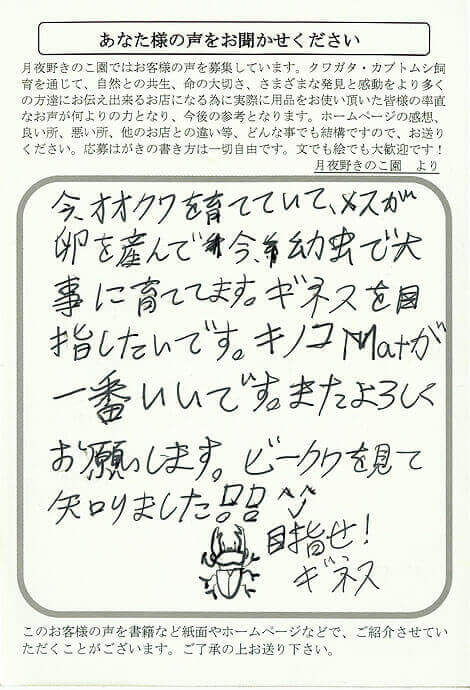 あなた様の声をお聞かせください
月夜野きのこ園ではお客様の声を募集しています。クワガタ・カブトムシ飼
育を通じて、自然との共生、命の大切さ、さまざまな発見と感動をより多く
の方達にお伝え出来るお店になる為に実際に用品をお使い頂いた皆様の率直
なお声が何よりの力となり、今後の参考となります。ホームページの感想、
良い所、悪い所、他のお店との違い等、どんな事でも結構ですので、お送り
ください。応募はがきの書き方は一切自由です。文でも絵でも大歓迎です！
月夜野きのこ園　より
今、オオクワを育てていて、メスが
卵を産んで今、幼虫で大
事に育ててます。ギネスを目
指したいです。キノコMatが
一番いいです。またよろしく
お願いします。ビークワを見て
知りました。
目指せ！
ギネス
このお客様の声を書籍など紙面やホームページなどで、ご紹介させてい
ただくことがございます。ご了承の上お送り下さい。